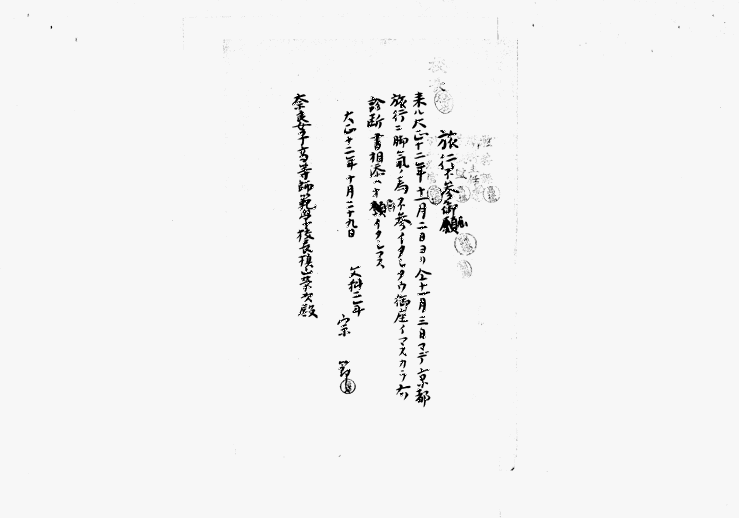 旅行不参御願
来ル大正十二年十一月二日ヨリ仝十一月三日マデ京都
旅行ニ脚氣ノ為不参イタシタウ御座イマスカラ右
診断書相添ヘ御願イタシマス
大正十二年十月二十九日
文科二年
宗
奈良女子高等師範学校長槇山榮次殿